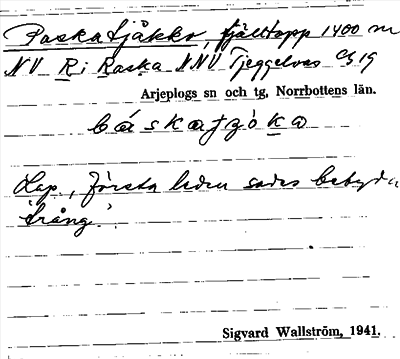 Paskatjåkko, fjälltopp 1400 m
NV Ri Raska NNV Tjeggelvas Cg 19
Arjeplogs sn och tg, Norrbottens län.
báskatjòka
Lap., första leden sades betyda
'trång'.
Sigvard Wallström, 1941.